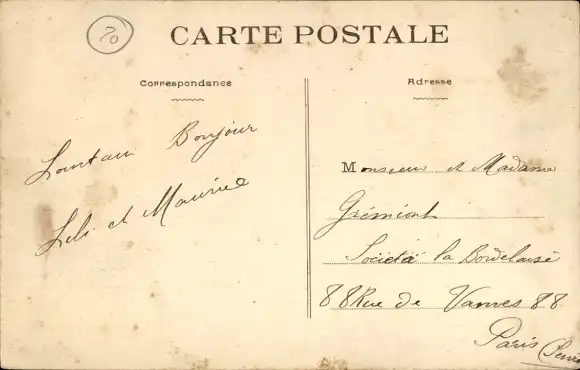 70
CARTE POSTALE
Correspondance
Adresse
Lointain Bonjour
Lili et Maurice
Monsieur et Madame
Grémiont
Société la Bordelaise
88 Rue de Vanves 88
Paris